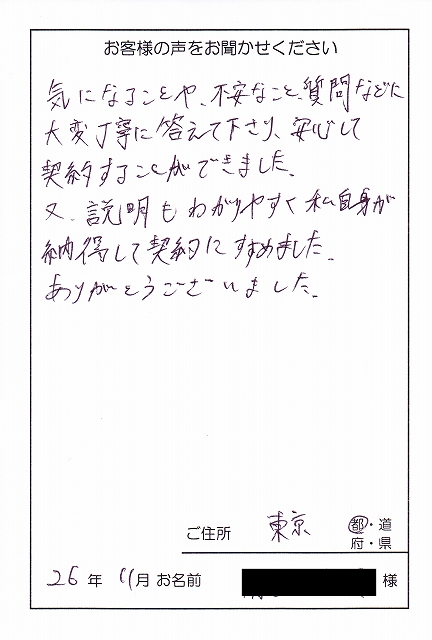 お客様の声をお聞かせください
気になることや、不安なこと、質問などに
大変丁寧に答えて下さり、安心して
契約することができました。
又、説明もわかりやすく私自身が
納得して契約にすすめました。
ありがとうございました。
ご住所 東京 都・道
府・県
26年 11月 お名前 様